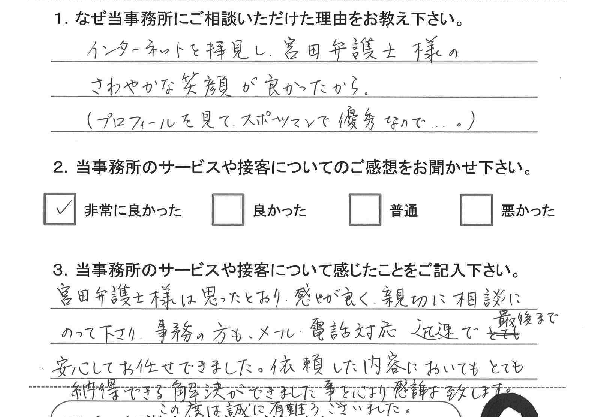 1. なぜ当事務所にご相談いただけた理由をお教え下さい。
インターネットを拝見し、宮田弁護士様の
さわやかな笑顔が良かったから。
(プロフィールを見て、スポーツマンで優秀なので…。)
2. 当事務所のサービスや接客についてのご感想をお聞かせ下さい。
非常に良かった 良かった 普通 悪かった
3. 当事務所のサービスや接客について感じたことをご記入下さい。
宮田弁護士様は思ったとおり、感じが良く、親切に相談に
のって下さり、事務の方も、メール・電話対応 迅速で 最後まで
安心してお任せできました。依頼した内容においてもとても
納得できる解決ができました事を心より感謝致します。
この度は誠に有難うございました。